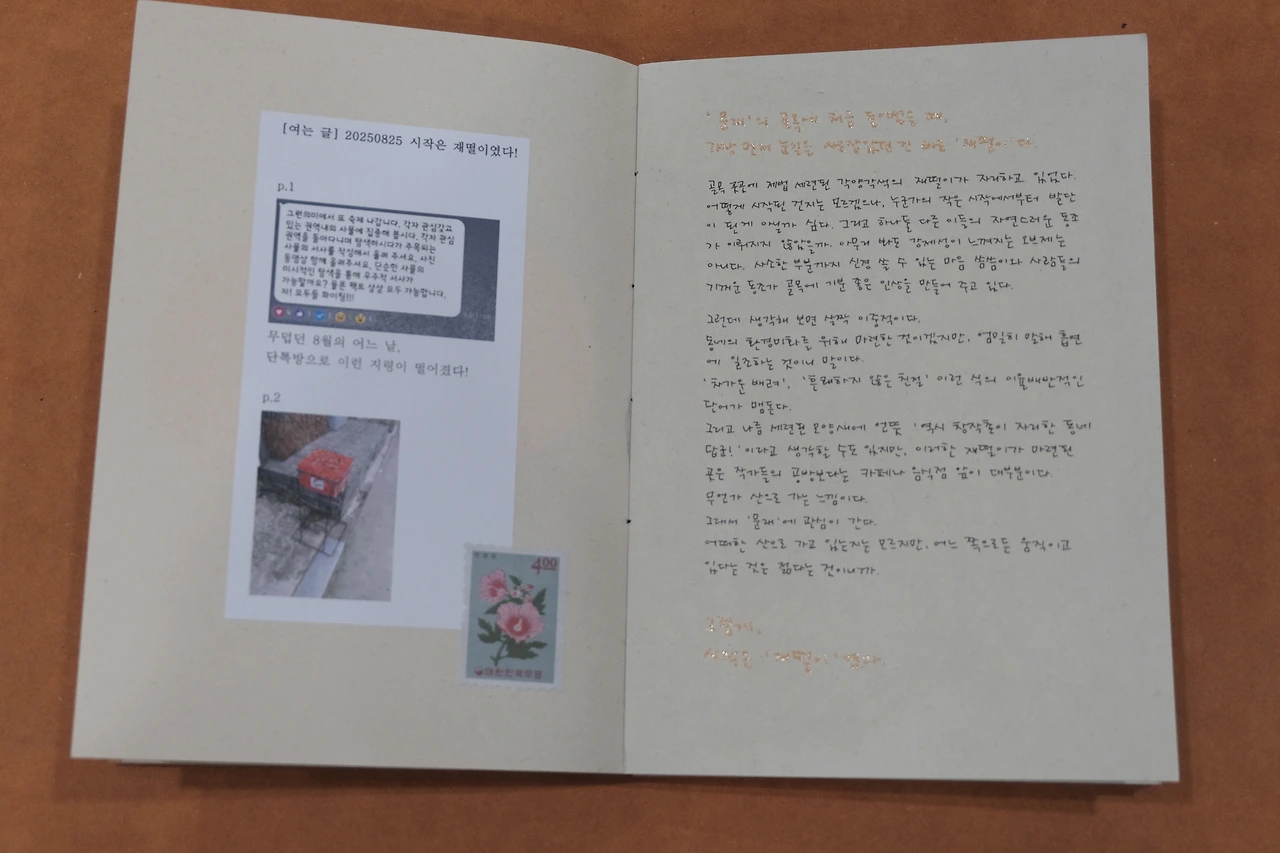 [여는 글] 20250825 시작은 재떨이였다!
p.1
그런의미에서 또 숙제 나갑니다. 각자 관심갖고
있는 권역내의 사물에 집중해 봅시다. 각자 관심
권역을 돌아다니며 탐색하시다가 주목되는
사물의 서사를 작성해서 올려 주세요. 사진
동영상 함께 올려주세요. 단순한 사물의
미시적인 탐색을 통해 우주적 서사가
가능할까요? 물론 팩트 상상 모두 가능합니다.
자! 모두들 화이팅!!!
무덥던 8월의 어느 날,
단톡방으로 이런 지령이 떨어졌다!
p.2
400
대한민국우표
'문래'의 골목에 처음 들어섰을 때,
가장 먼저 눈길을 사로잡았던 건 바로 '재떨이'다.
골목 곳곳에 제법 세련된 각양각색의 재떨이가 자리하고 있었다.
어떻게 시작된 건지는 모르겠으나, 누군가의 작은 시작에서부터 발단
이 된 게 아닐까 싶다. 그리고 하나둘 다른 이들의 자연스러운 동조
가 이뤄지지 않았을까. 아무리 봐도 강제성이 느껴지는 오브제는
아니다. 사소한 부분까지 신경 쓸 수 있는 마음 씀씀이와 사람들의
기꺼운 동조가 골목에 기분 좋은 인상을 만들어 주고 있다.
그런데 생각해 보면 살짝 이중적이다.
동네의 환경미화를 위해 마련한 것이겠지만, 엄밀히 말해 흡연
에 일조하는 것이니 말이다.
'차가운 배려', '흔쾌하지 않은 친절' 이런 식의 이율배반적인
단어가 맴돈다.
그리고 나름 세련된 모양새에 언뜻 '역시 창작촌이 자리한 동네
답군!'이라고 생각할 수도 있지만, 이러한 재떨이가 마련된
곳은 작가들의 공방보다는 카페나 음식점 앞이 대부분이다.
무언가 산으로 가는 느낌이다.
그래서 '문래'에 관심이 간다.
어떠한 산으로 가고 있는지는 모르지만, 어느 쪽으로든 움직이고
있다는 것은 젊다는 것이니까.
그렇게,
시작은 '재떨이'였다.